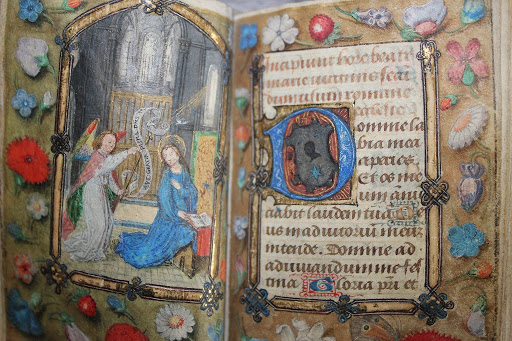 Incipiunt hore beate
marie virginis secu
dum usum romane
Domine la
bia mea
aperies,
Et os me
um anu
ciabit laudem tuā
us in adiutoriū meū
intende. Domine ad
adiuvandum me fes
tina Gloria pri et